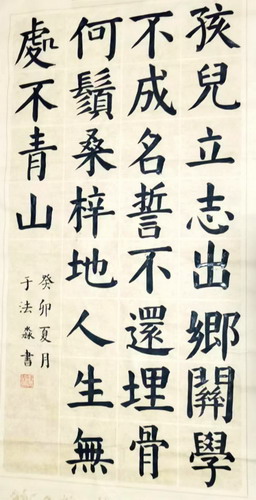 孩兒立志出鄉關學
不成名誓不還埋骨
何鬚桑梓地人生無
處不青山
癸卯夏月
于法淼書